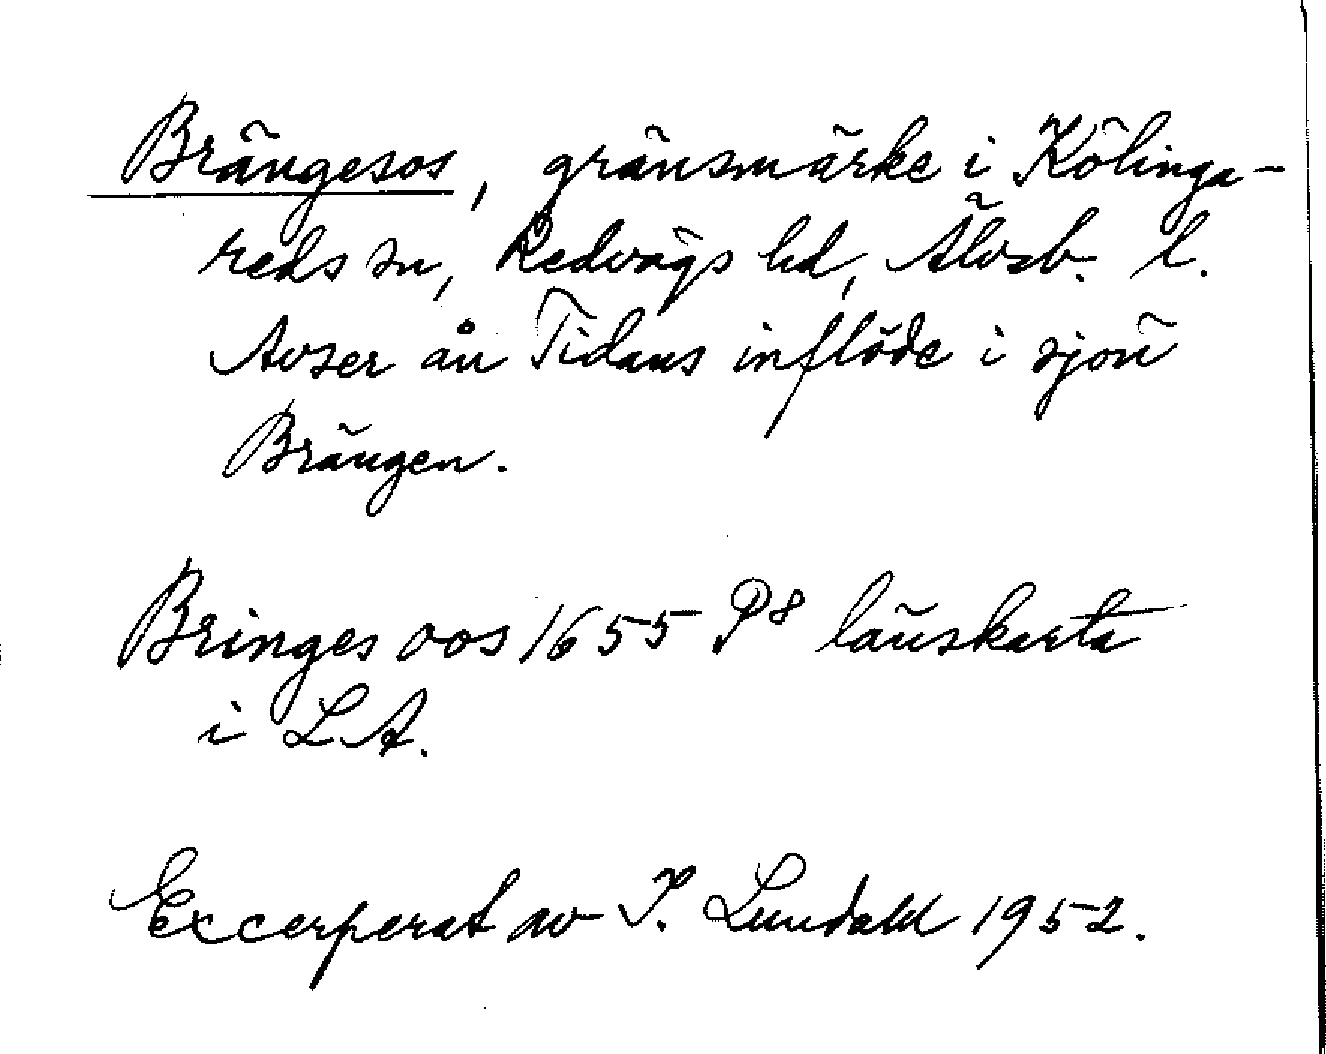 Brängesos, gränsmärke i Kölinga-
reds sn, Redvägs hd, Älvsb. l.
Avser ån Tidans inflöde i sjön
Brängen.
Bringes oos 1655 P8 länskarta
i L.A.
Excerperat av I. Lundahl 1952.